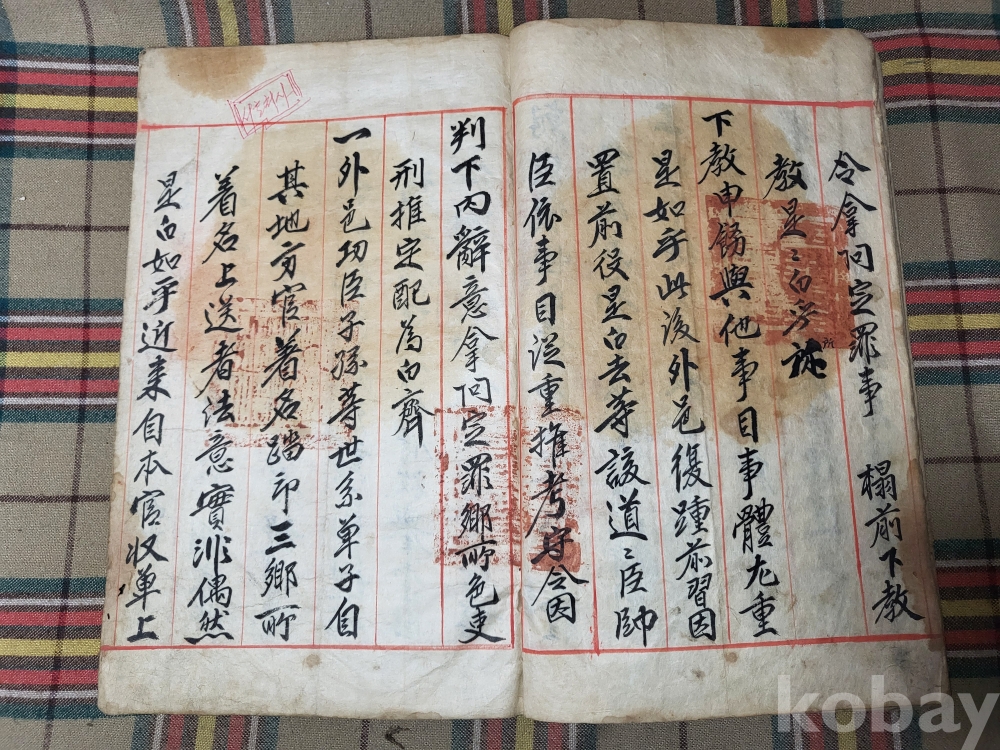 令拿問定罪事 榻前下教
教是是白乎所
下教申飭與他事目事體尤重
是如乎此後外邑復踵前習因
置前役是白去等該道道臣帥
臣依事目從重推考守令因
判下內辭意拿問定罪鄕所色吏
刑推定配爲白齊
一外邑功臣子孫等世系單子自
其地方官着名踏印三鄕所
着名上送者法意實非偶然
是白如乎近來自本官收單上
kobay